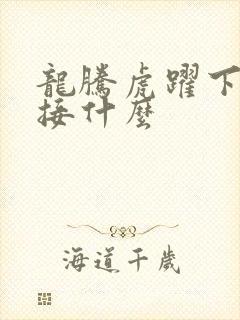 龍騰虎躍下
接什麼
海道千歲